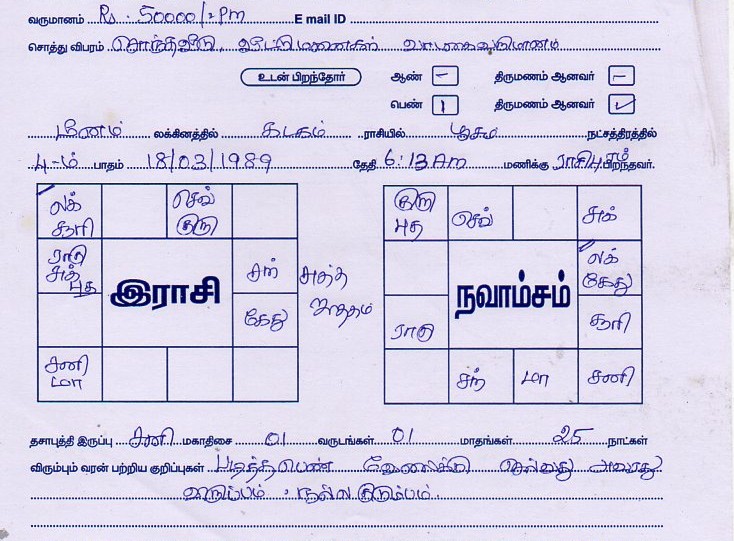 வருமானம் Rs. 50000/- Pm E mail ID
சொத்து விபரம் சொந்தவீடு, வீட்டு மனைகள் வாடகைவருமானம்
உடன் பிறந்தோர் ஆண் - திருமணம் ஆனவர் -
பெண் 1 திருமணம் ஆனவர் ✓
மீனம் லக்கினத்தில் கடகம் ராசியில் பூசம் நட்சத்திரத்தில்
4-ம் பாதம் 18/03/1989 தேதி 6:13 Am மணிக்கு ராசிபுரம் பிறந்தவர்.
லக் சூரி
செவ் குரு
ராகு சுக் புத
சந்
கேது
சனி மா
இராசி
சுத்த
குரு புத
செவ்
சுக்
லக் கேது
ராகு
சூரி
சந்
மா
சனி
நவாம்சம்
தசாபுத்தி இருப்பு சனி மகாதிசை 01 வருடங்கள் 01 மாதங்கள் 25 நாட்கள்
விரும்பும் வரன் பற்றிய குறிப்புகள் படித்த பெண் வேலைக்கு செல்வது அவரது
விருப்பம். நல்ல குடும்பம்.